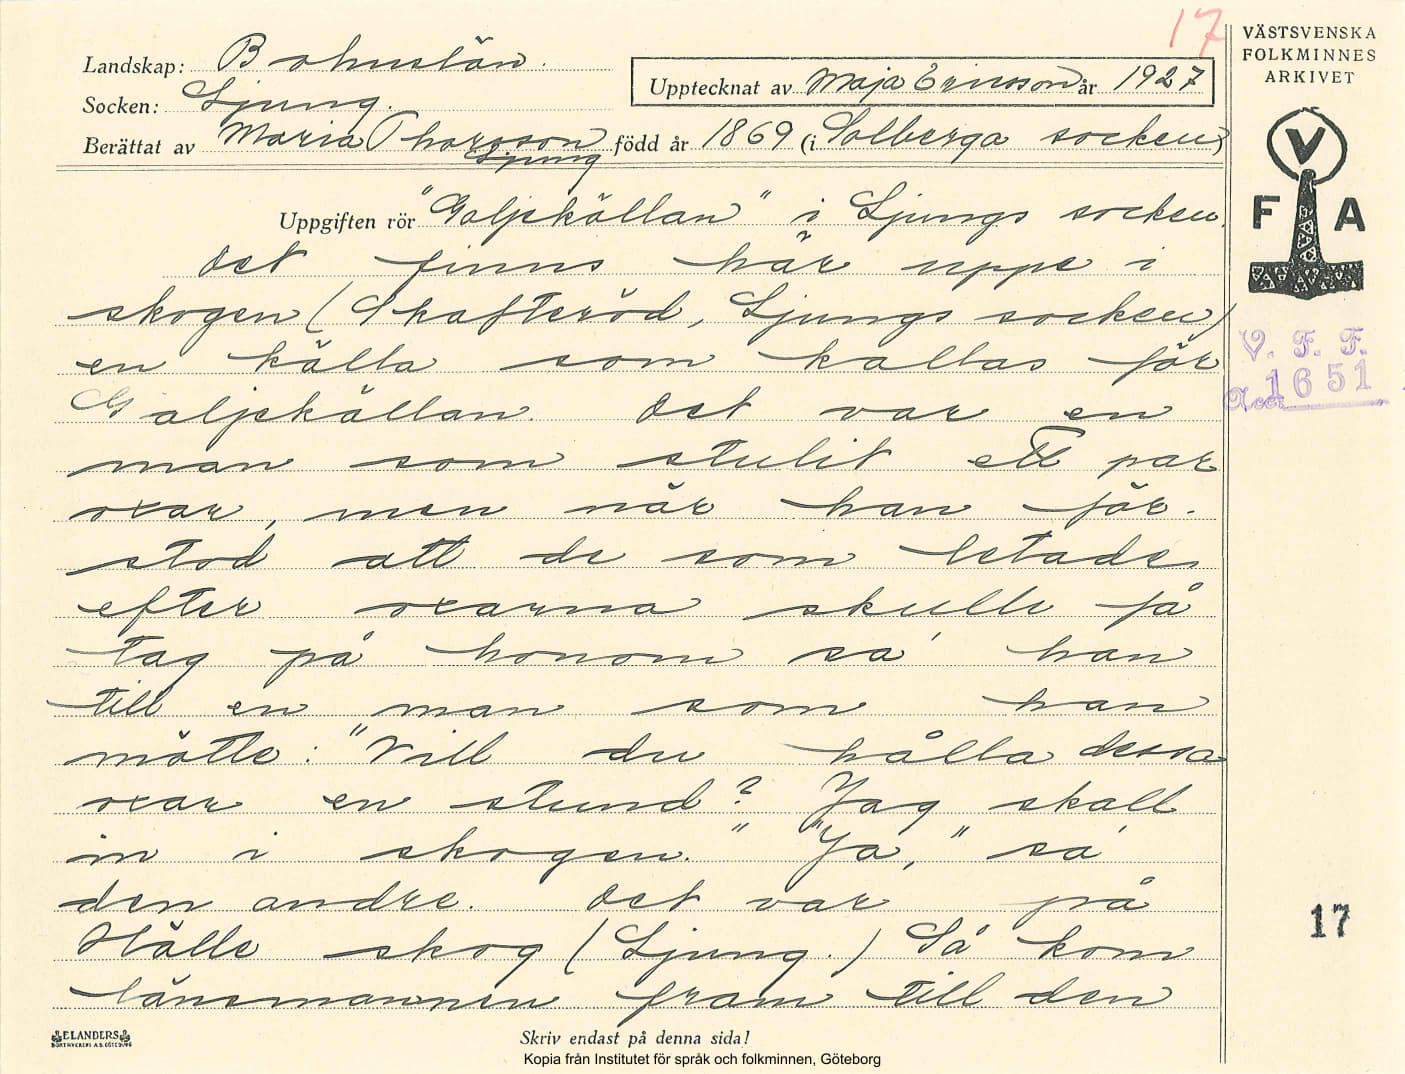 17
VÄSTSVENSKA
FOLKMINNES
ARKIVET
Landskap: Bohuslän.
Upptecknat av Maja Ericsson år 1927
Socken: Ljung.
Berättat av Maria Thorsson född år 1869 (i Solberga socken)
Ljung
V
F A
Uppgiften rör "Galjekällan" i Ljungs socken.
Det finns här uppe i
skogen (Skafteröd, Ljungs socken)
en källa som kallas för
Galjekällan. Det var en
man som stulit ett par
oxar, men när han för-
stod att de som letade
efter oxarna skulle få
tag på honom sa' han
till en man som han
mötte: "Vill du hålla dessa
oxar en stund? Jag skall
in i skogen." "Ja," sa'
den andre. Det var på
Hälle skog (Ljung.) Så kom
länsmannen fram till den
V. F. F.
Acc. 1651
17
ELANDERS
BOKTRYCKERI A.B. GÖTEBORG
Skriv endast på denna sida!
Kopia från Institutet för språk och folkminnen, Göteborg